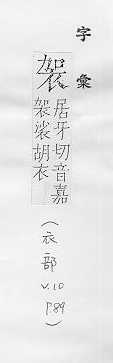 字彙
袈
居牙切音嘉
袈裟胡衣
(衣部
V.10
P.89)